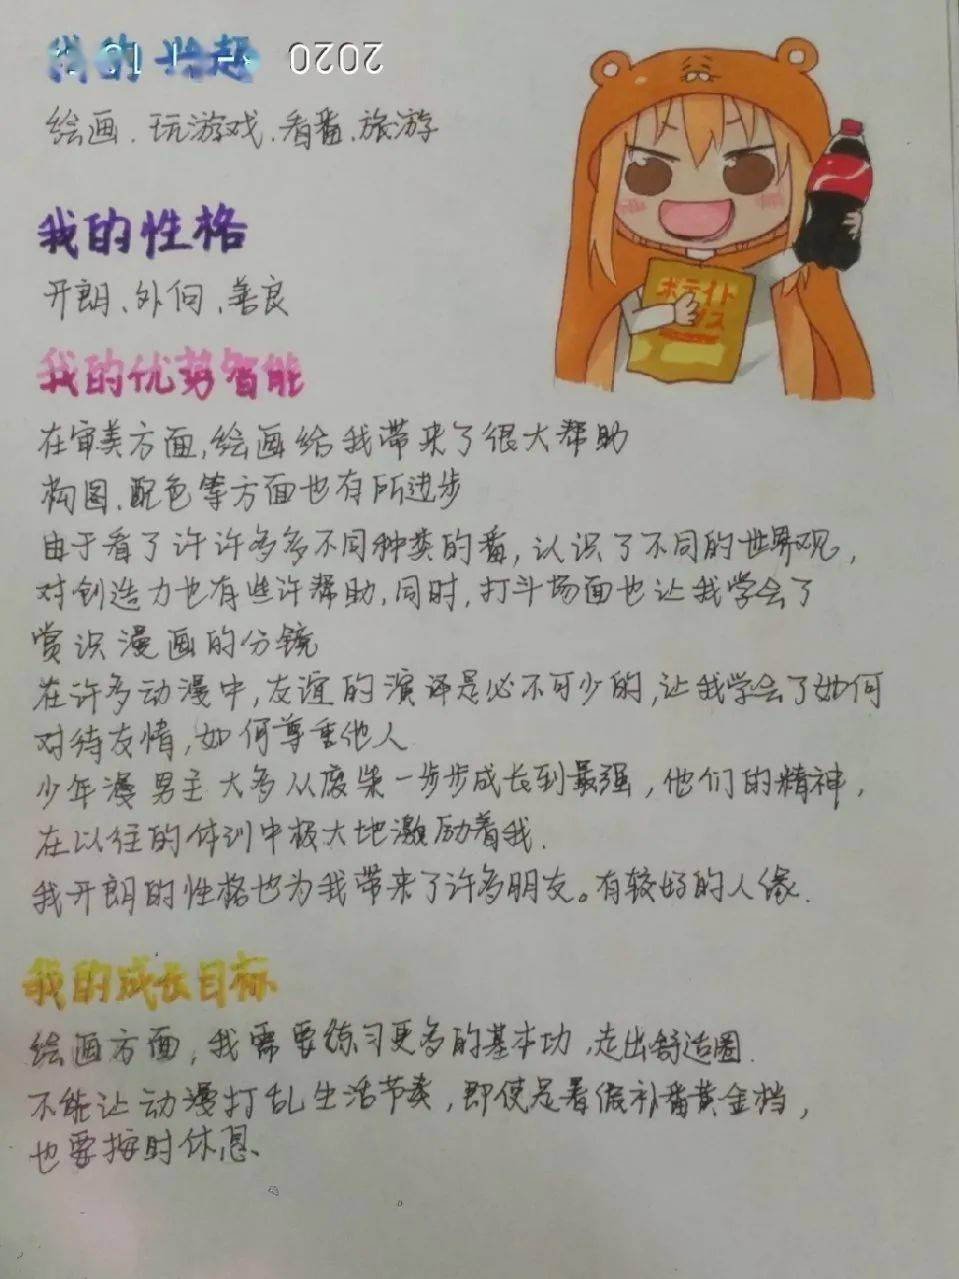 我的兴趣 2020
绘画、玩游戏、看番、旅游
我的性格
开朗、外向、善良
我的优势智能
在审美方面,绘画给我带来了很大帮助
构图、配色等方面也有所进步
由于看了许许多多不同种类的番,认识了不同的世界观,
对创造力也有些许帮助,同时,打斗场面也让我学会了
赏识漫画的分镜
在许多动漫中,友谊的演译是必不可少的,让我学会了如何
对待友情,如何尊重他人
少年漫男主大多从废柴一步步成长到最强,他们的精神,
在以往的体训中极大地激励着我.
我开朗的性格也为我带来了许多朋友。有较好的人缘.
我的成长目标
绘画方面,我需要练习更多的基本功,走出舒适圈.
不能让动漫打乱生活节奏,即使是暑假补番黄金档,
也要按时休息、
ポテイト